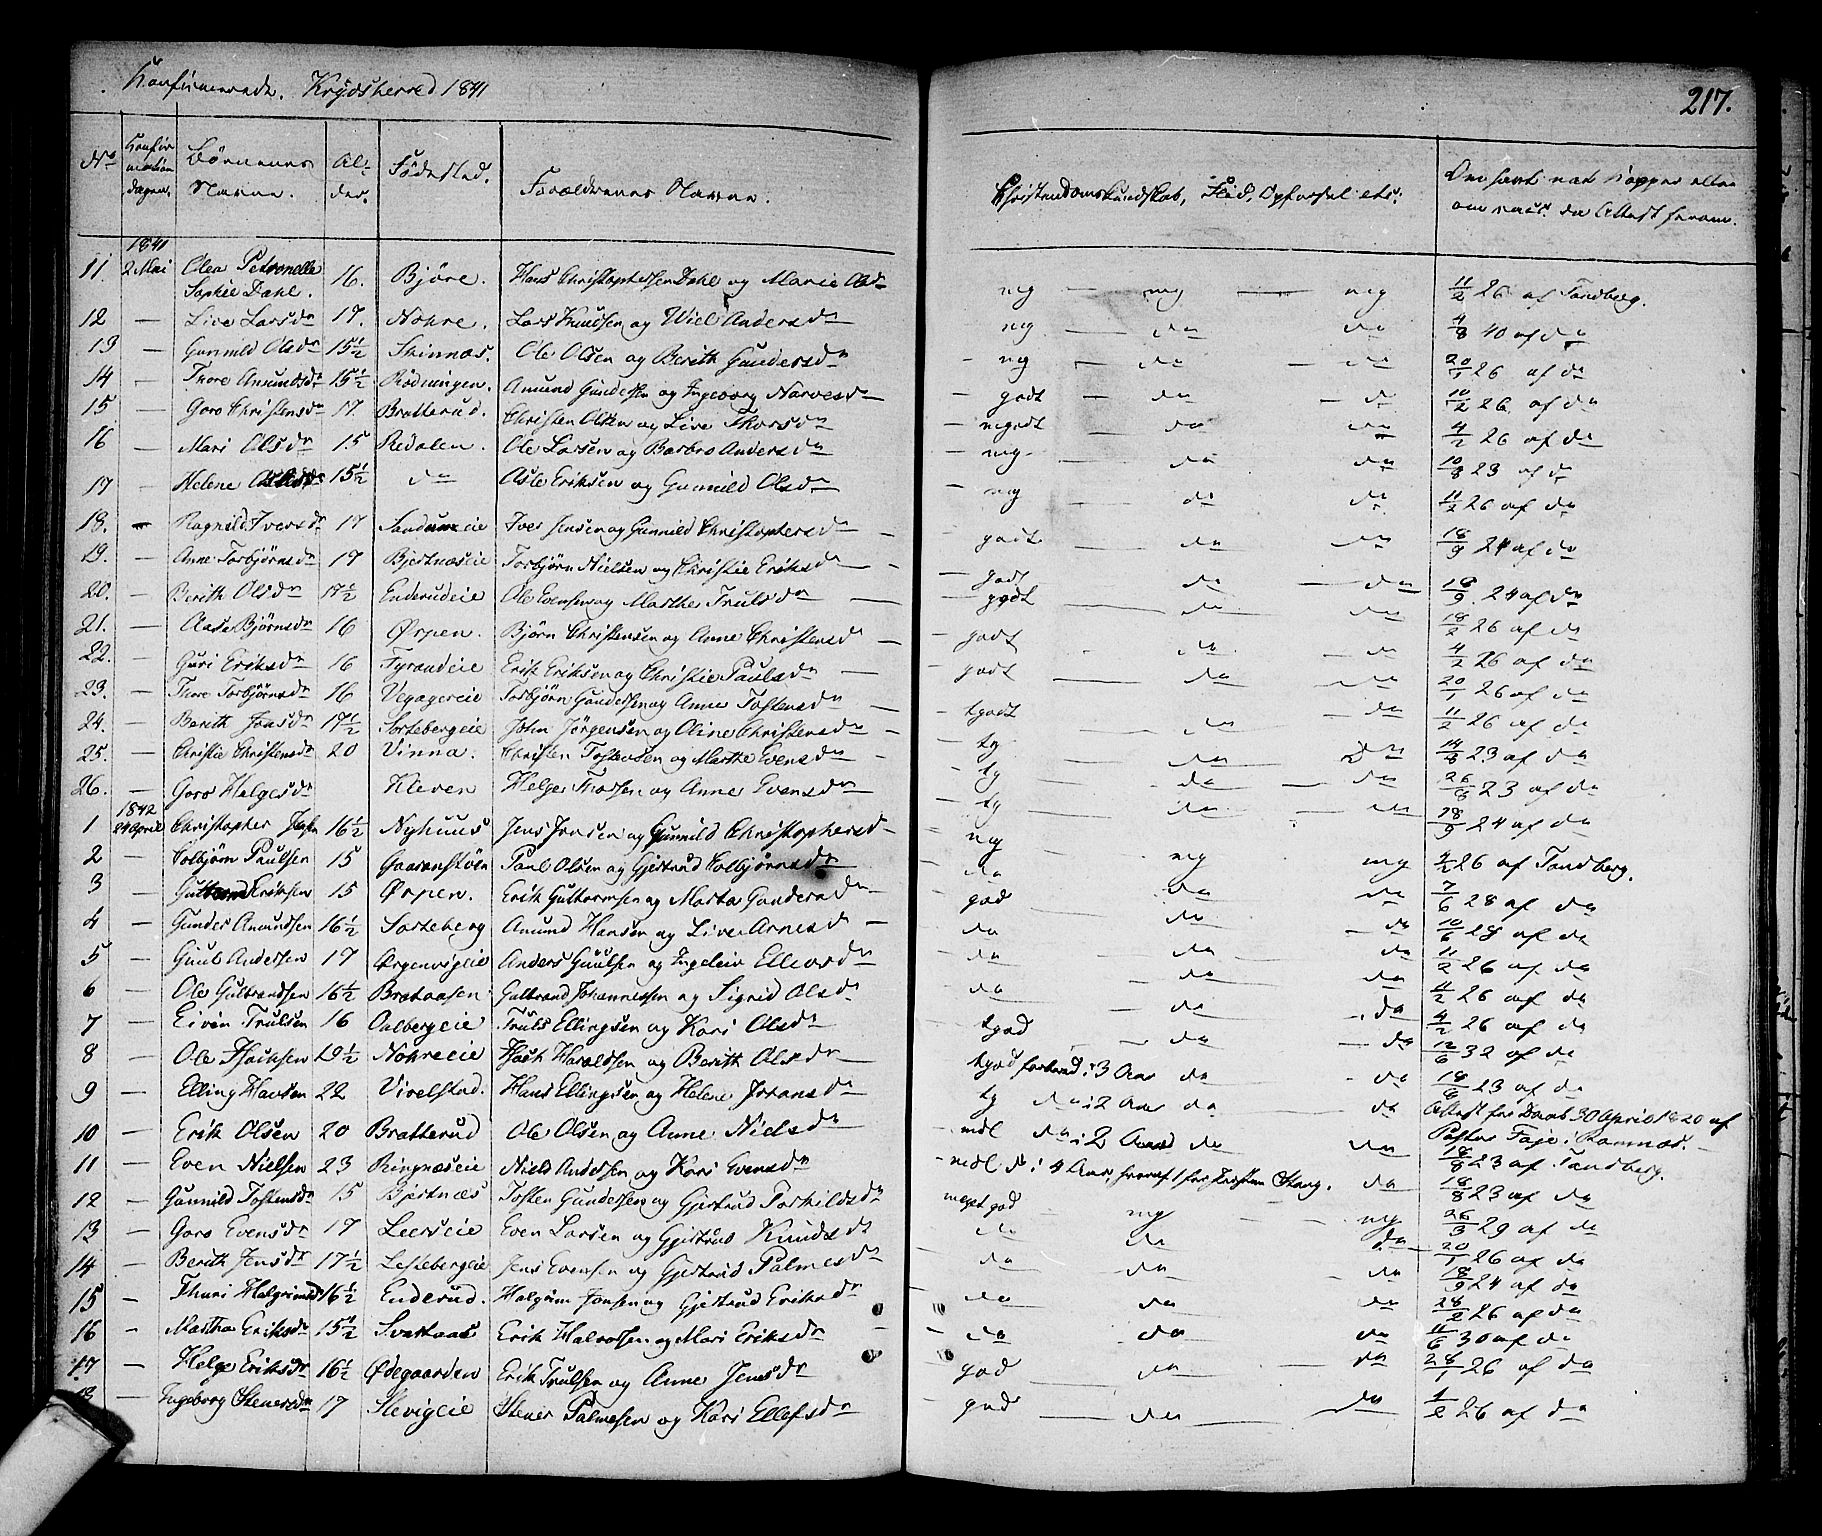 Konfirmerede. Krydsherred 1841
217.
No Konfirmations dagen. Børnenes Navne. Alder. Fødested. Forældrenes Navne. Christendomskundskab, Flid, Opførsel etc: Om havt nat. Kopper eller om vacc. da Attest herom.
11. 1841 2 Mai Olea Petronelle Sophie Dahl. 16. Bjøre. Hans Christophersen Dahl og Marie Olsdr mg — mg — mg 11/2 26 af Tandberg.
12 — Live Larsdr 17. Nohre. Lars Knudsen og Wiel Andersdr mg — do do 4/8 40 af do
13 — Gunnild Olsdr 15½ Skinnæs. Ole Olsen og Berith Gundersdr mg — do — do 20/1 26 af do
14 — Thore Amundsdr 15½ Rødningen. Amund Gundersen og Ingeborg Narvesdr — godt — do — do 10/2 26 af do
15 — Goro Christensdr 17. Bratterud. Christen Olsen og Live Thorsdr — mgodt — do do 4/2 26 af do
16 — Mari Olsdr 15 Redalen. Ole Larsen og Barbro Andersdr — mg — do do 10/8 23 af do
17 — Helene Aslesdr 15½ do Asle Eriksen og Gunnild Olsdr mg — do do 11/2 26 af do
18. — Ragnild Iversdr 17 Sandumeie Iver Jensen og Gunnild Christophersdr — godt — do do 18/9 24 af do
19. — Anne Torbjørnsdr 17 Bjertnæseie Torbjørn Nielsen og Christie Eriksdr — godt do — do 18/9 24 af do
20. — Berith Olsdr 17½ Enderudeie Ole Evensen og Marthe Trulsdr — godt — do do 18/2 26 af do
21. — Aase Bjørnsdr 16 Ørpen. Bjørn Christensen og Anne Christensdr — godt — do do 4/2 26 af do
22. — Guri Eriksdr 16 Fyrandeie Erik Eriksen og Christie Paulsdr — godt — do — do 20/1 26 af do
23. — Thore Torbjørnsdr 16 Vegagereie Torbjørn Gundersen og Anne Tostensdr — tgodt — do — do 11/2 26 af do
24. — Berith Jonsdr 17½ Sortebergeie John Jørgensen og Oline Christensdr — tg — do do 14/8 23 af do
25. — Christie Christensdr 20 Vinna. Christen Tostensen og Marthe Evensdr — tg — do — do 26/8 23 af do
26. — Goro Helgesdr Kleven Helge Thorsen og Anne Evensdr — tg do — do 18/9 24 af do
1 1842 24 April Christopher 16½ Nyhuus Jens Jensen og Gunnild Christophersdr — mg mg mg 4/2 26 af Tandberg.
2 — Colbjørn Paulsen 15 Paul Olsen og Gjertrud Colbjørnsdr do — do do 7/6 28 af do
3 Guttorm Eriksen 15 Ørpen. Erik Guttormsen og Marta Gundersdr — god — do — do 10/6 28 af do
4 — Gunder Amundsen 16½ Sorteberg Amund Hansen og Live Arnesdr — do — do do 11/2 26 af do
5 — Guul Andersen 17 Anders Guulsen og Ingeleiv Ellevsdr — do — do do 4/2 26 af do
6 — Ole Gulbrandsen 16½ Brataasen Gulbrand Johannessen og Sigrid Olsdr do — do do 4/2 26 af do
7 — Eivin Trulsen 16 Aalbergeie Truls Ellingsen og Kari Olsdr tgod — do — do 12/6 32 af do
8 — Ole Haichsen 19½ Nohreeie Haich Haroldsen og Berith Olsdr — tgod forberedt i 3 Aar do — do 18/8 23 af do
9 — Elling Hansen 22 Vivelstad. Hans Ellingsen og Helene Johansdr tg do i 2 Aar do — do Attest for Daab 30 April 1820 af Pastor Faje i Ramnæs.
10 — Erik Olsen 20 Bratterud Ole Olsen og Anne Nielsdr — mdl do i 2 Aar do do 18/8 23 af Tandberg.
11 — Even Nielsen 23 Ringnæseie Niels Andersen og Kari Evensdr — mdl do i 4 Aar, hvoraf 1 for Pastor Stang. do 18/8 23 af do
12 — Gunnild Tostensdr 15 Bjertnæs Tosten Gundersen og Gjertrud Torkildsdr meget god mg — mg 26/3 29 af do
13. — Goro Evensdr 17 Leerseie Even Larsen og Gjertrud Knudsdr — do do do 20/1 26 af do
14 — Berith Jensdr 17½ Leslebergeie Jens Evensen og Gjertrud Palmesdr — do do — do 18/9 24 af do
15 — Thuri Halgrimsdr 16½ Enderud. Halgrim Jonsen og Gjertrud Eriksdr — do — do do 28/2 26 af do
16 — Martha Eriksdr 15½ Svartaas Erik Halvorsen og Mari Eriksdr — do do do 11/6 30 af do
17 — Helge Eriksdr 16½ Ødegaarden Erik Trulsen og Anne Jensdr god — do — do 28/1 26 af do
18 — Ingeborg Stenersdr 17 Slevigeie Stener Palmesen og Kari Ellefsdr — god — do — do 1/2 26 af do